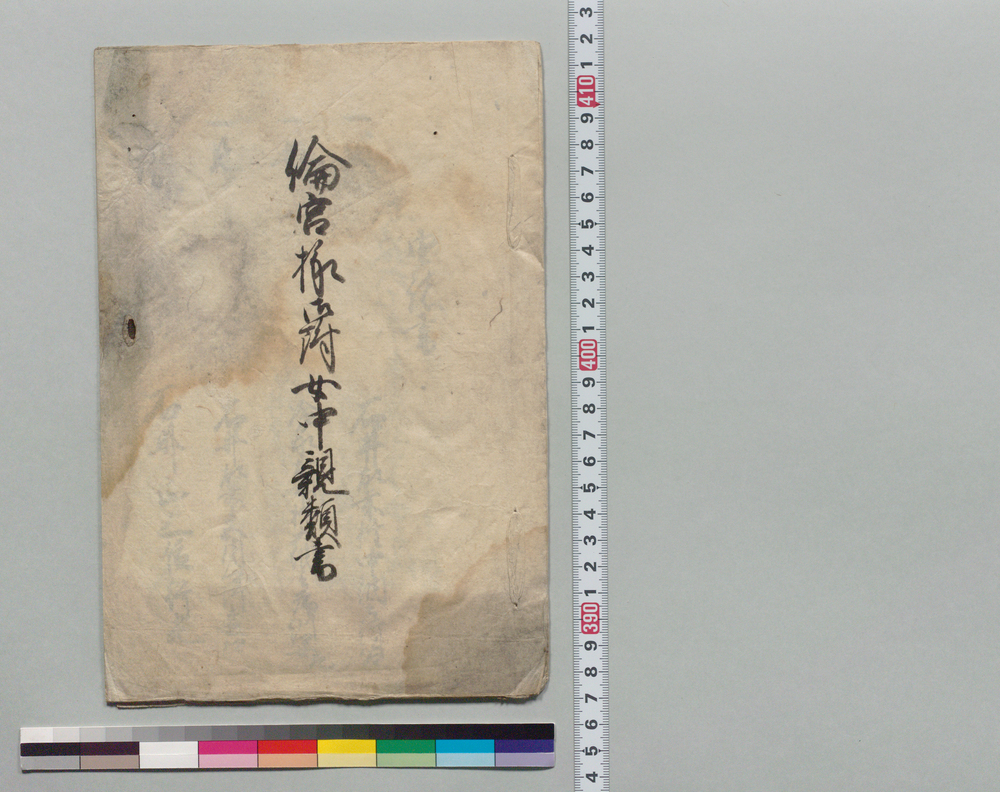 倫宮様御附女中親類書
3
2
1
410
9
8
7
6
5
4
3
2
1
400
9
8
7
6
5
4
3
2
1
390
9
8
7
6
5
4